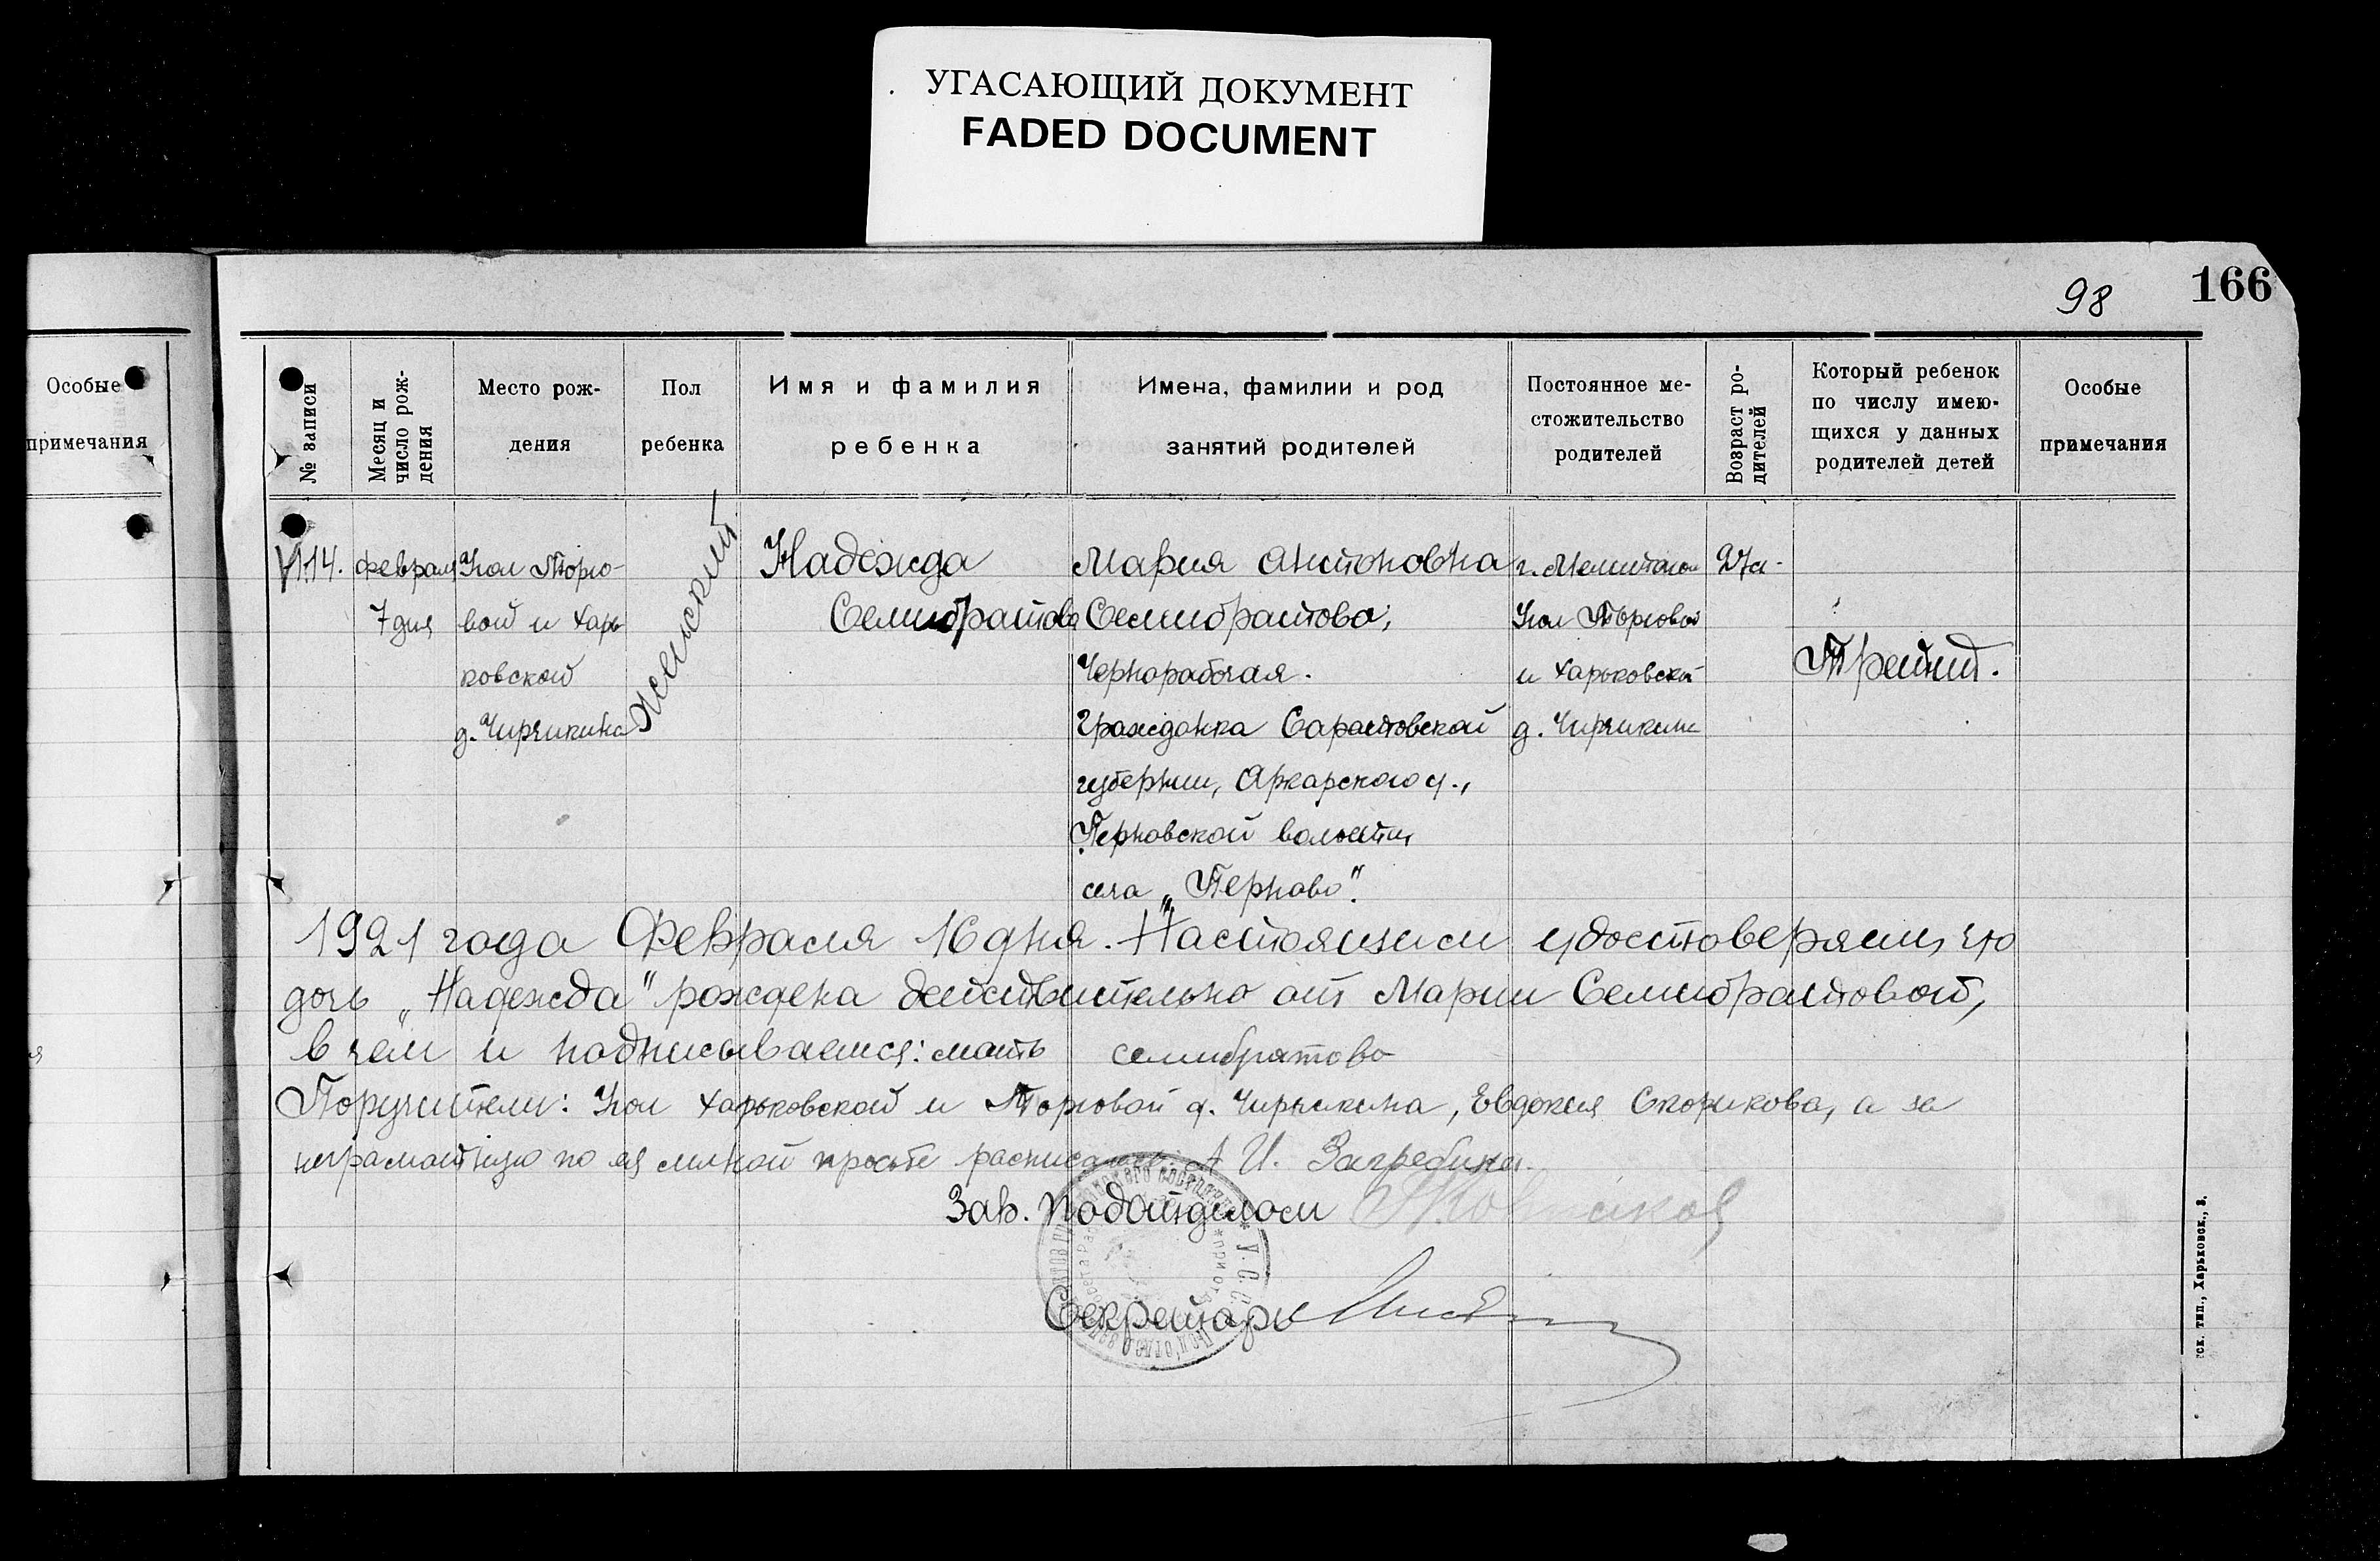 УГАСАЮЩИЙ ДОКУМЕНТ
FADED DOCUMENT
98
166
Особые
примечания
№ записи
Месяц и
число рож-
дения
Место рож-
дения
Пол
ребенка
Имя и фамилия
ребенка
Имена, фамилии и род
занятий родителей
Постоянное ме-
стожительство
родителей
Возраст ро-
дителей
Который ребенок
по числу имею-
щихся у данных
родителей детей
Особые
примечания
114.
Февраля
7 дня
Угол Торго-
вой и Харь
ковской
д. Чирчикина
Женский
Надежда
Семибратова
Мария Антоновна
Семибратова,
Чернорабочая.
Гражданка Саратовской
губернии, Аркарского у.,
Перновской волости,
села „Перново".
г. Мелитополь
Угол Торговой
и Харьковской
д. Чирчикина
27 л.
Третий.
1921 года Февраля 16 дня. Настоящим удостоверяем, что
дочь „Надежда" рождена действительно от Марии Семибратовой,
в чем и подписываемся: мать семибратово
Поручители: Угол Харьковской и Торговой д. Чирчикина, Евдокия Скорикова, а за
неграмотную по ея личной просьбе расписалась: А И. Загребина.
Зав. Подотделом
Секретарь
тск. тип., Харьковск., 3.